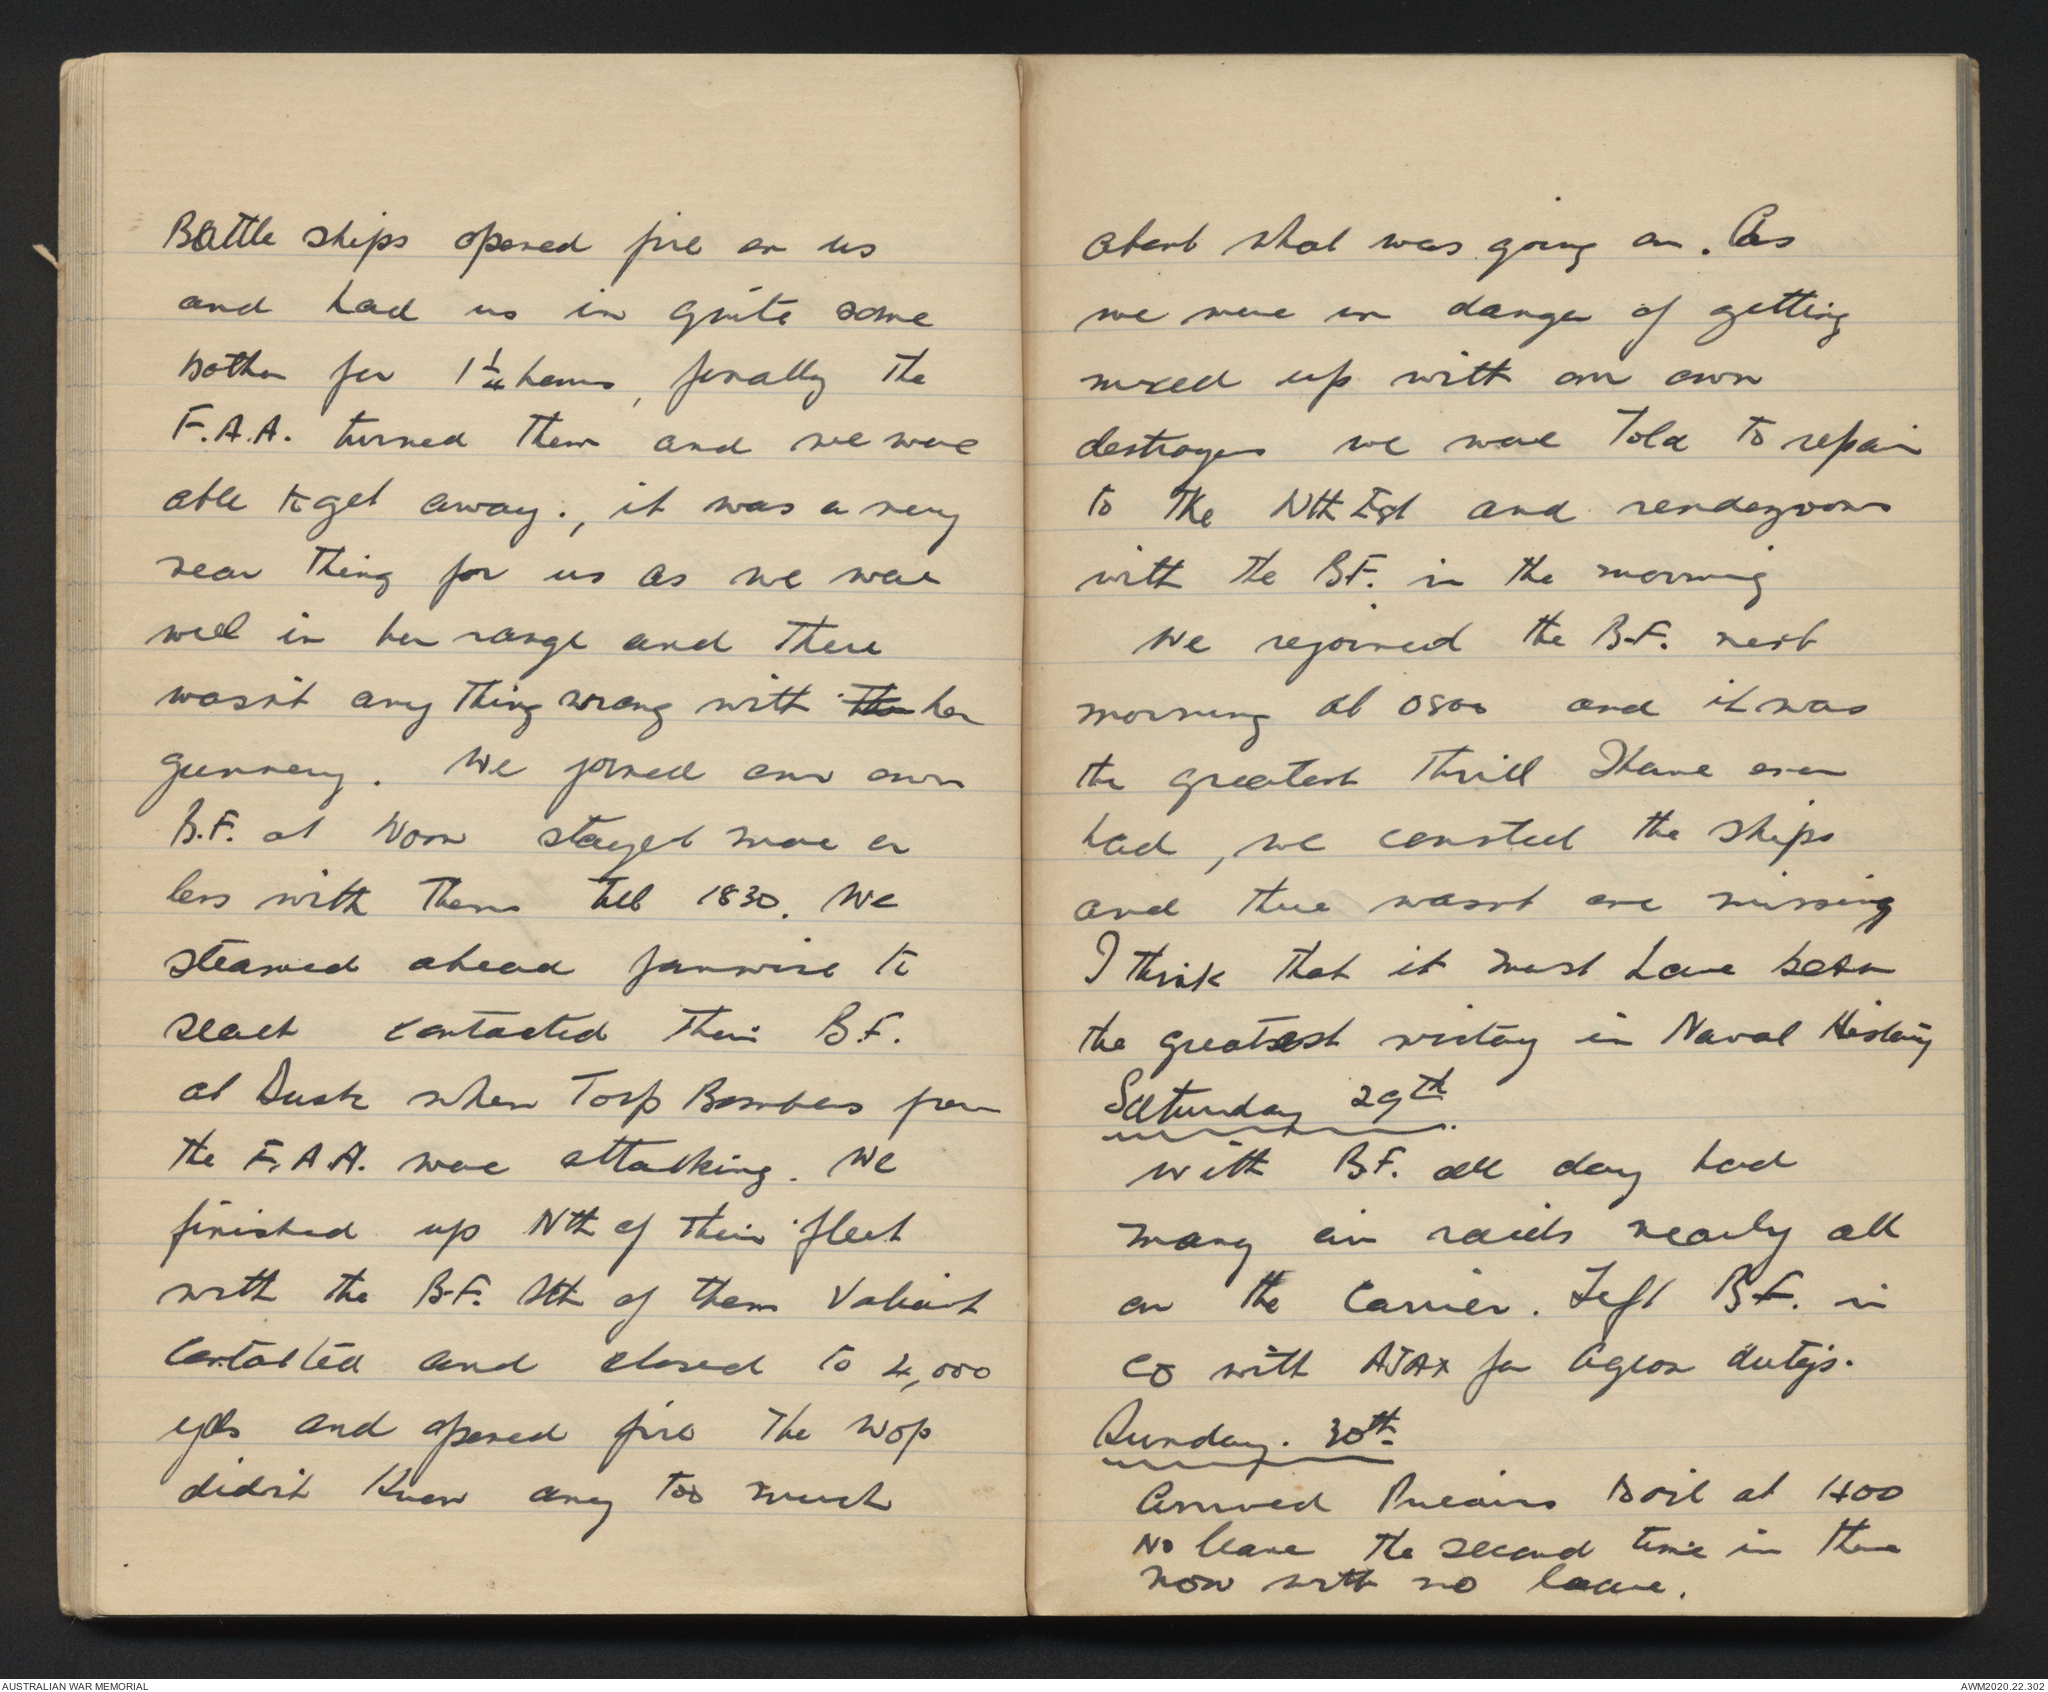 Battle ships opened fire on us
and had us in quite some
bother for 1 1/4 hours, finally the
F.A.A. turned them and we were
able to get away., it was a very
near thing for us as we were
well in her range and there
wasn't any thing wrong with the her
gunnery. We joined our own
B.F. at Noon stayed more or
less with them till 1830. We
steamed ahead fanwise to
seach contacted their B.F.
at Dusk when Torp Bombers from
the F.A.A. were attacking. We
finished up Nth of their fleet
with the B.F. Sth of them Valiant
contacted and closed to 4,000
yds and opened fire The Wop
didn't know any too much
about what was going on. As
we were in danger of getting
mixed up with our own
destroyers we were Told to repair
to The Nth Est and rendezvous
with the B.F. in the morning
We rejoined the B.F. next
morning at 0800 and it was
the greatest Thrill I have ever
had, we counted the ships
and there wasnt one missing
I think that it must have been
the greatest victory in Naval History
Saturday 29th.
With B.F. all day had
many air raids nearly all
on the Carrier. Left B.F. in
Co with AJAX for Agean
Sunday. 30th
Arrived to oil at 1400
No leave The second time in there
now with no leave.
AUSTRALIAN WAR MEMORIAL
AWM2020.22.302